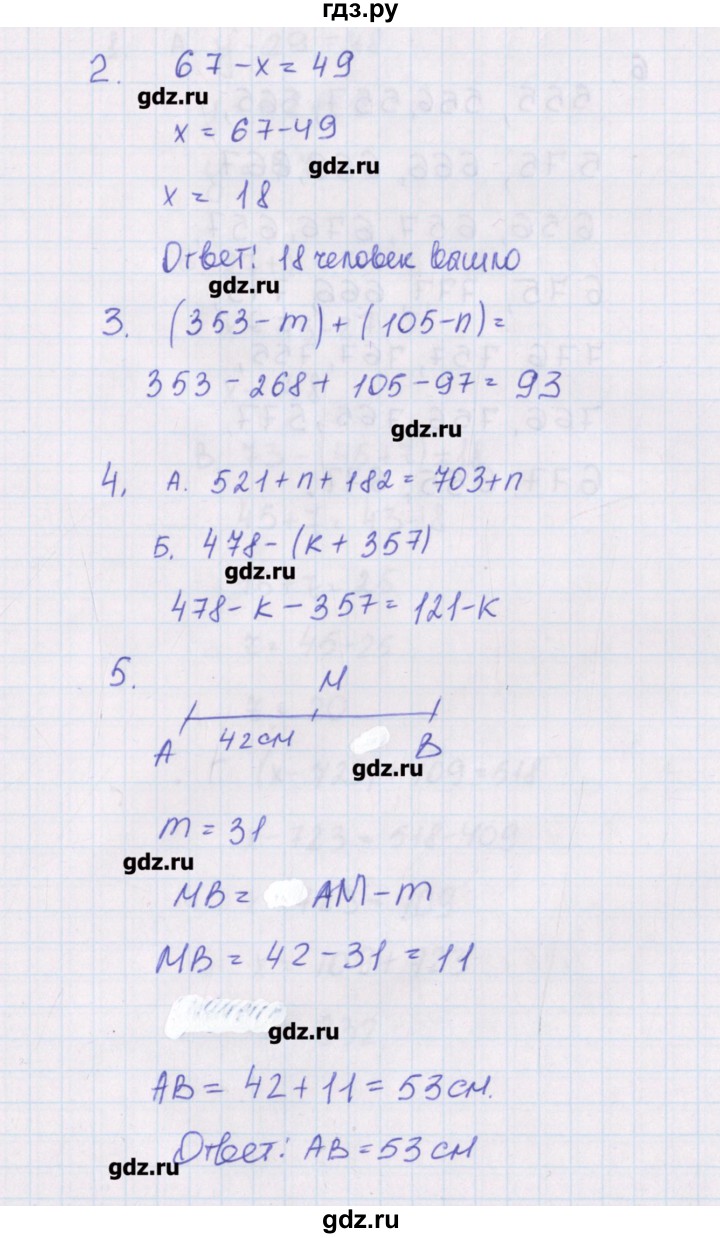 гдз.ру
2. 67-x=49
gdz.ru
x=67-49
gdz.ru
x= 18
Ответ: 18 человек вышло
gdz.ru
3. (353-m)+(105-n)=
353-268+ 105-97=93
gdz.ru
4. А. 521+n+182=703+n
Б. 478-(k+357)
gdz.ru
478-k-357=121-k
5.
M
A 42см B
gdz.ru
m=31
gdz.ru
MB= AM-m
MB= 42-31=11
gdz.ru
AB= 42+11=53см.
Ответ: AB=53см
gdz.ru
gdz.ru